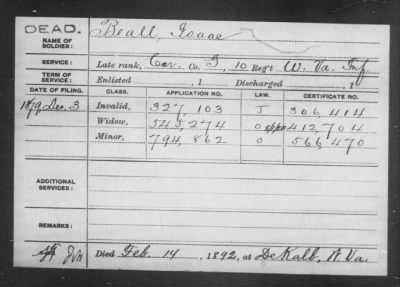 DEAD.
NAME OF SOLDIER: Beall, Isaac
SERVICE: Late rank, Cor. Co. I, 10 Reg't W. Va. Inf.
TERM OF SERVICE: Enlisted , 1 Discharged , 1
DATE OF FILING. CLASS. APPLICATION NO. LAW. CERTIFICATE NO.
1879, Dec. 3 Invalid, 327,103 J 306,414
Widow, 545,274 O 412,704
Minor, 794,862 O 566,470
ADDITIONAL SERVICES:
REMARKS:
Died Feb. 14, 1892, at DeKalb, W. Va.